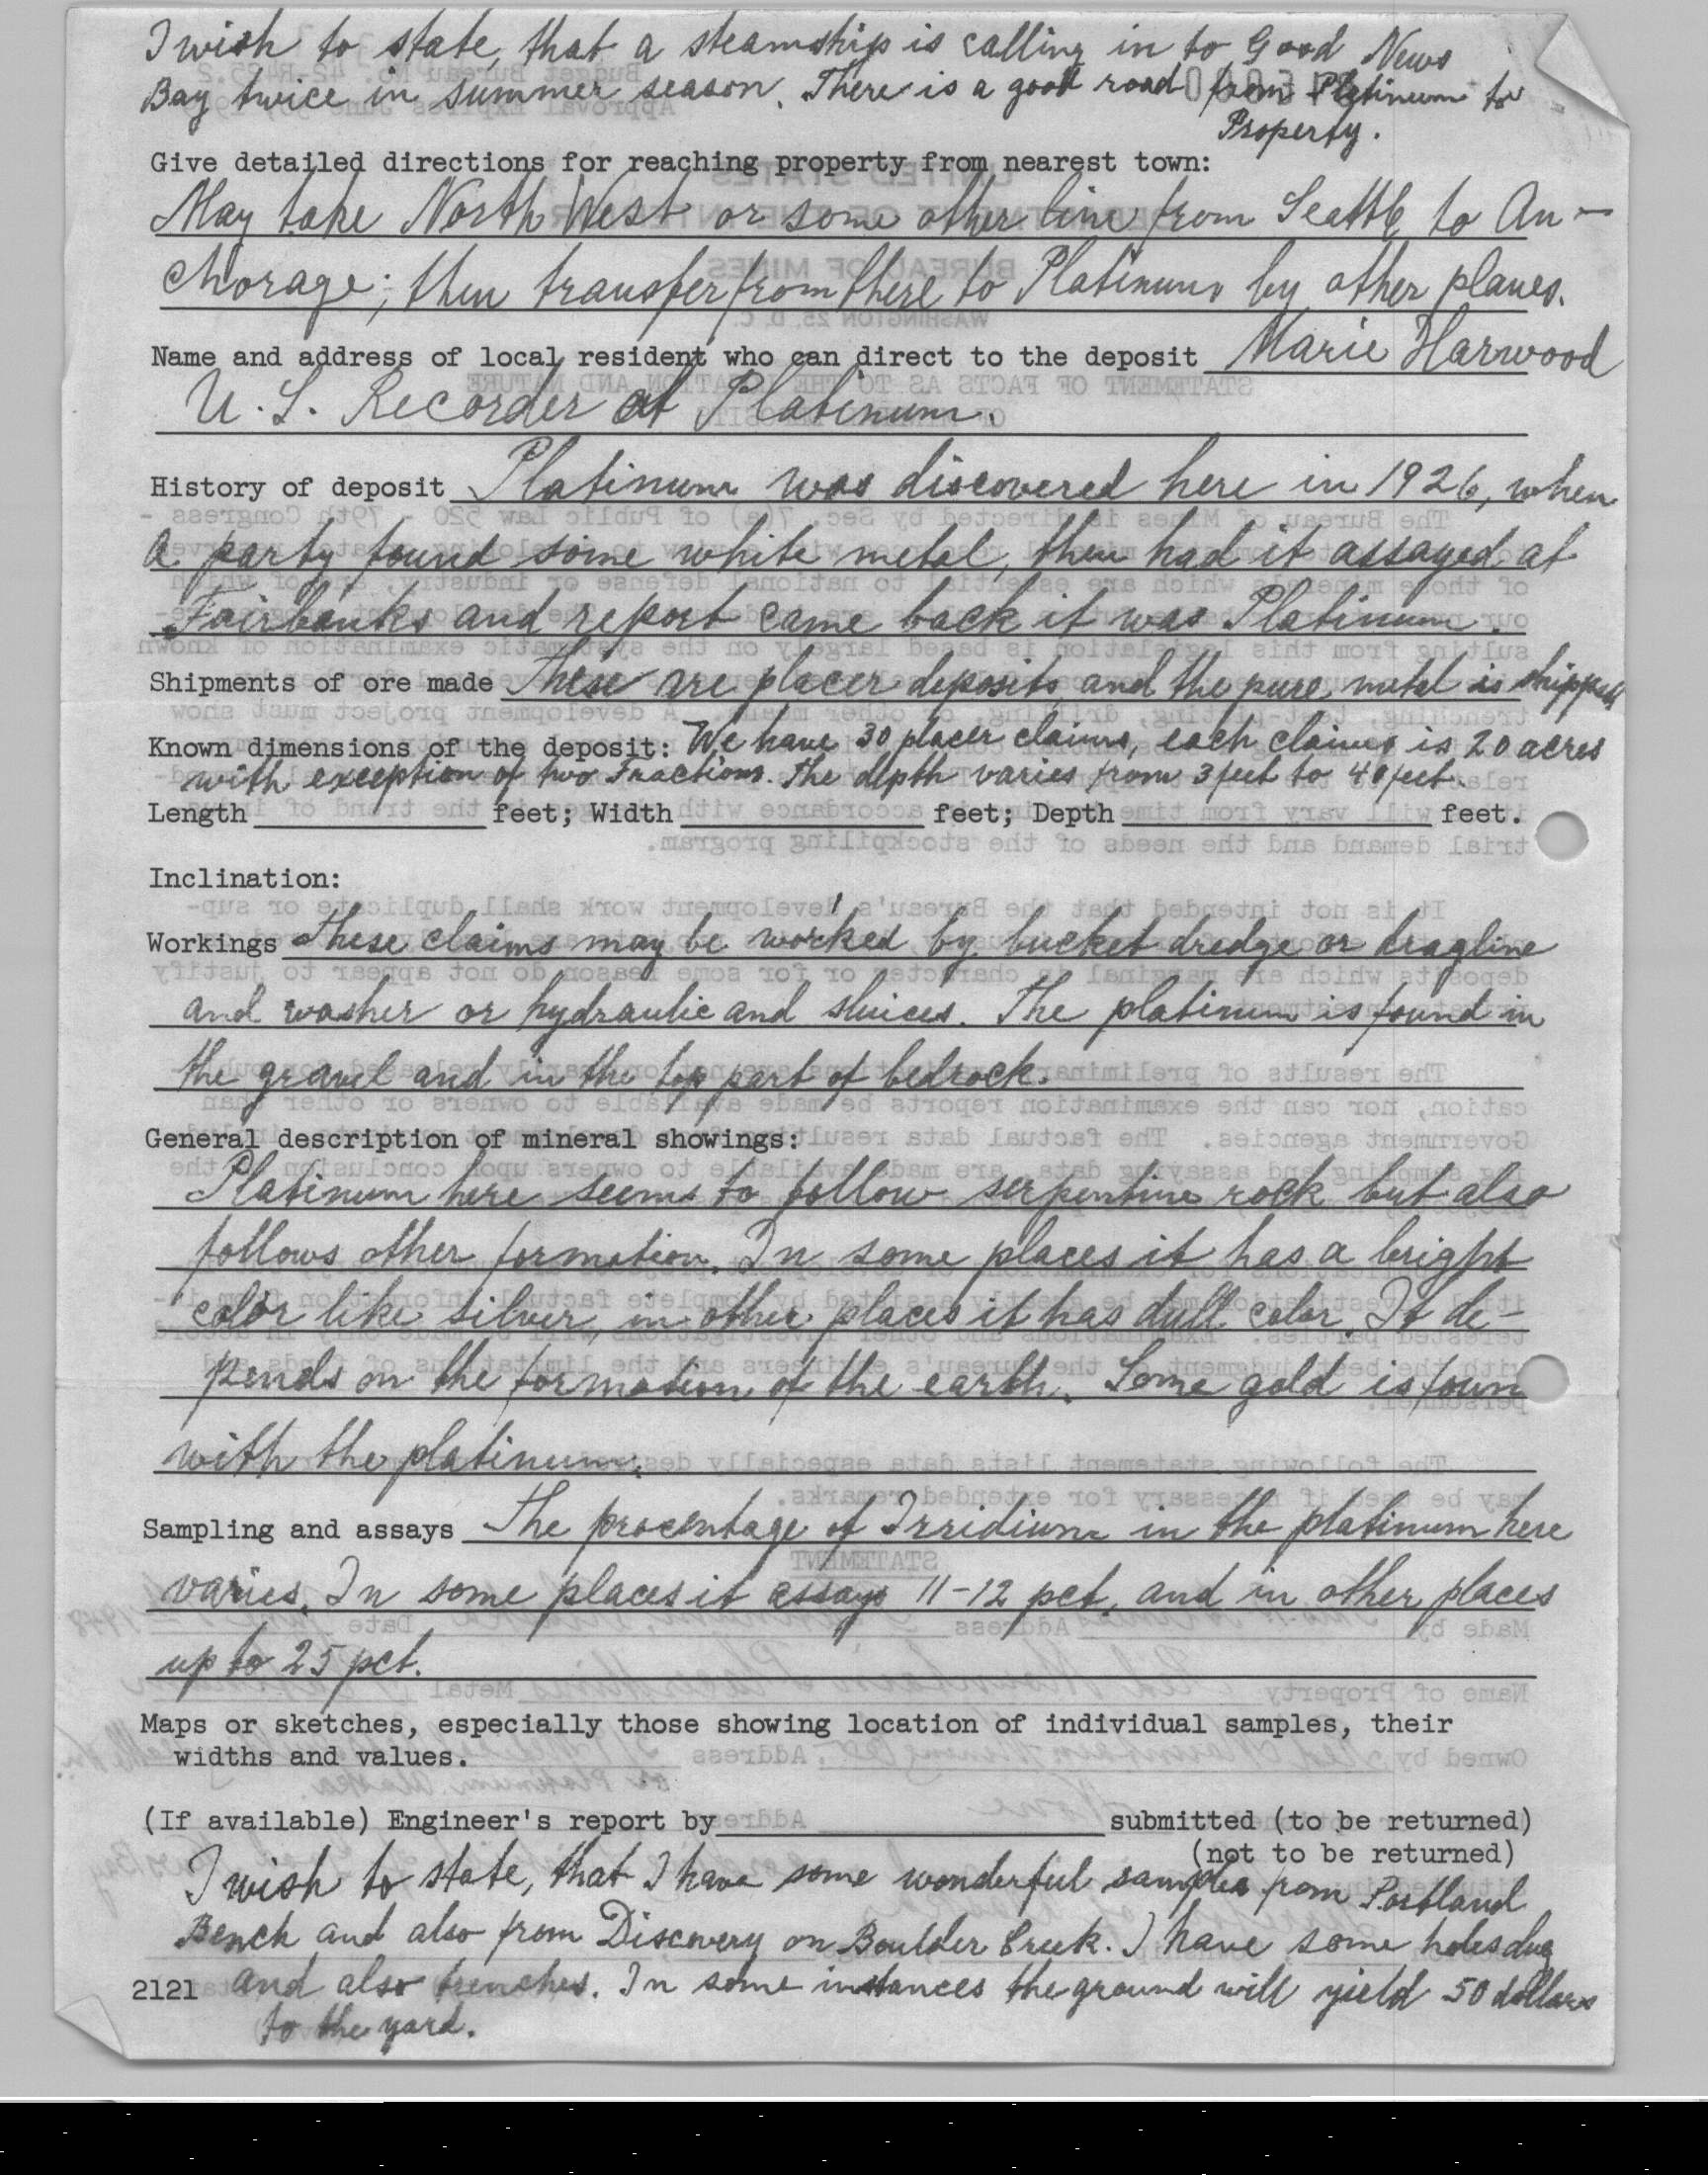 I wish to state, that a steamship is calling in to Good News
Bay twice in summer season. There is a good road from Platinum to
Property.
Give detailed directions for reaching property from nearest town:
May take North West or some other line from Seattle to An-
chorage; then transfer from there to Platinum by other planes.
Name and address of local resident who can direct to the deposit Marie Harwood
U.S. Recorder at Platinum.
History of deposit Platinum was discovered here in 1926, when
a party found some white metal, then had it assayed at
Fairbanks and report came back it was Platinum.
Shipments of ore made These are placer deposits and the pure metal is shipped
Known dimensions of the deposit: We have 30 placer claims, each claim is 20 acres
with exception of two Fractions. The depth varies from 3 feet to 40 feet.
Length feet; Width feet; Depth feet.
Inclination:
Workings These claims may be worked by bucket dredge or dragline
and washer or hydraulic and sluices. The platinum is found in
the gravel and in the top part of bedrock.
General description of mineral showings:
Platinum here seems to follow serpentine rock but also
follows other formation. In some places it has a bright
color like silver, in other places it has dull color. It de-
pends on the formation of the earth. Some gold is foun
with the platinum.
Sampling and assays The procentage of Irridium in the platinum here
varies. In some places it essays 11-12 pct. and in other places
up to 25 pct.
Maps or sketches, especially those showing location of individual samples, their
widths and values.
(If available) Engineer's report by submitted (to be returned)
(not to be returned)
I wish to state, that I have some wonderful samples from Portland
Bench and also from Discovery on Boulder Creek. I have some holes dug
2121 and also trenches. In some instances the ground will yield 50 dollars
to the yard.